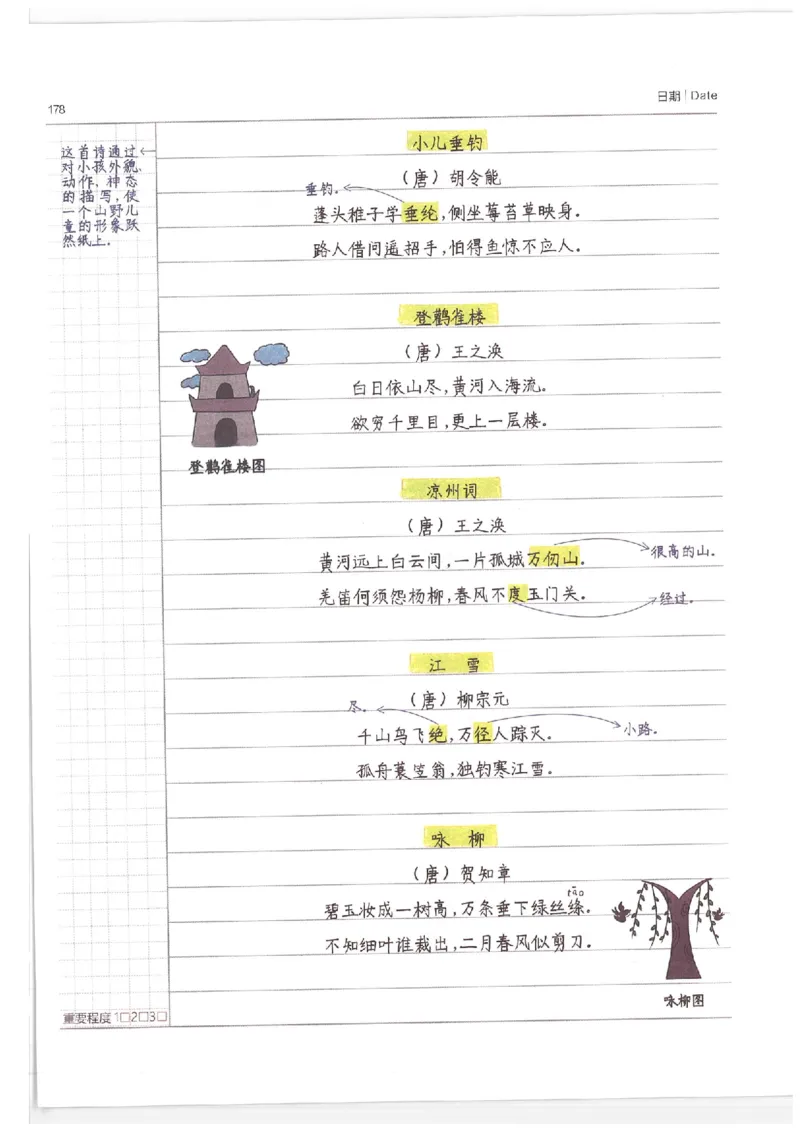 178
日期 | Date
这首诗通过
对小孩外貌、
动作，神态
的描写，使
一个山野儿
童的形象跃
然纸上。
小儿垂钓
（唐）胡令能
垂钓。
蓬头稚子学垂纶，侧坐莓苔草映身。
路人借问遥招手，怕得鱼惊不应人。
登鹳雀楼
（唐）王之涣
白日依山尽，黄河入海流。
欲穷千里目，更上一层楼。
登鹳雀楼图
凉州词
（唐）王之涣
黄河远上白云间，一片孤城万仞山。
很高的山。
羌笛何须怨杨柳，春风不度玉门关。
经过。
江 雪
（唐）柳宗元
尽。
千山鸟飞绝，万径人踪灭。
小路。
孤舟蓑笠翁，独钓寒江雪。
咏 柳
（唐）贺知章
tāo
碧玉妆成一树高，万条垂下绿丝绦。
不知细叶谁裁出，二月春风似剪刀。
咏柳图
重要程度 1□2□3□